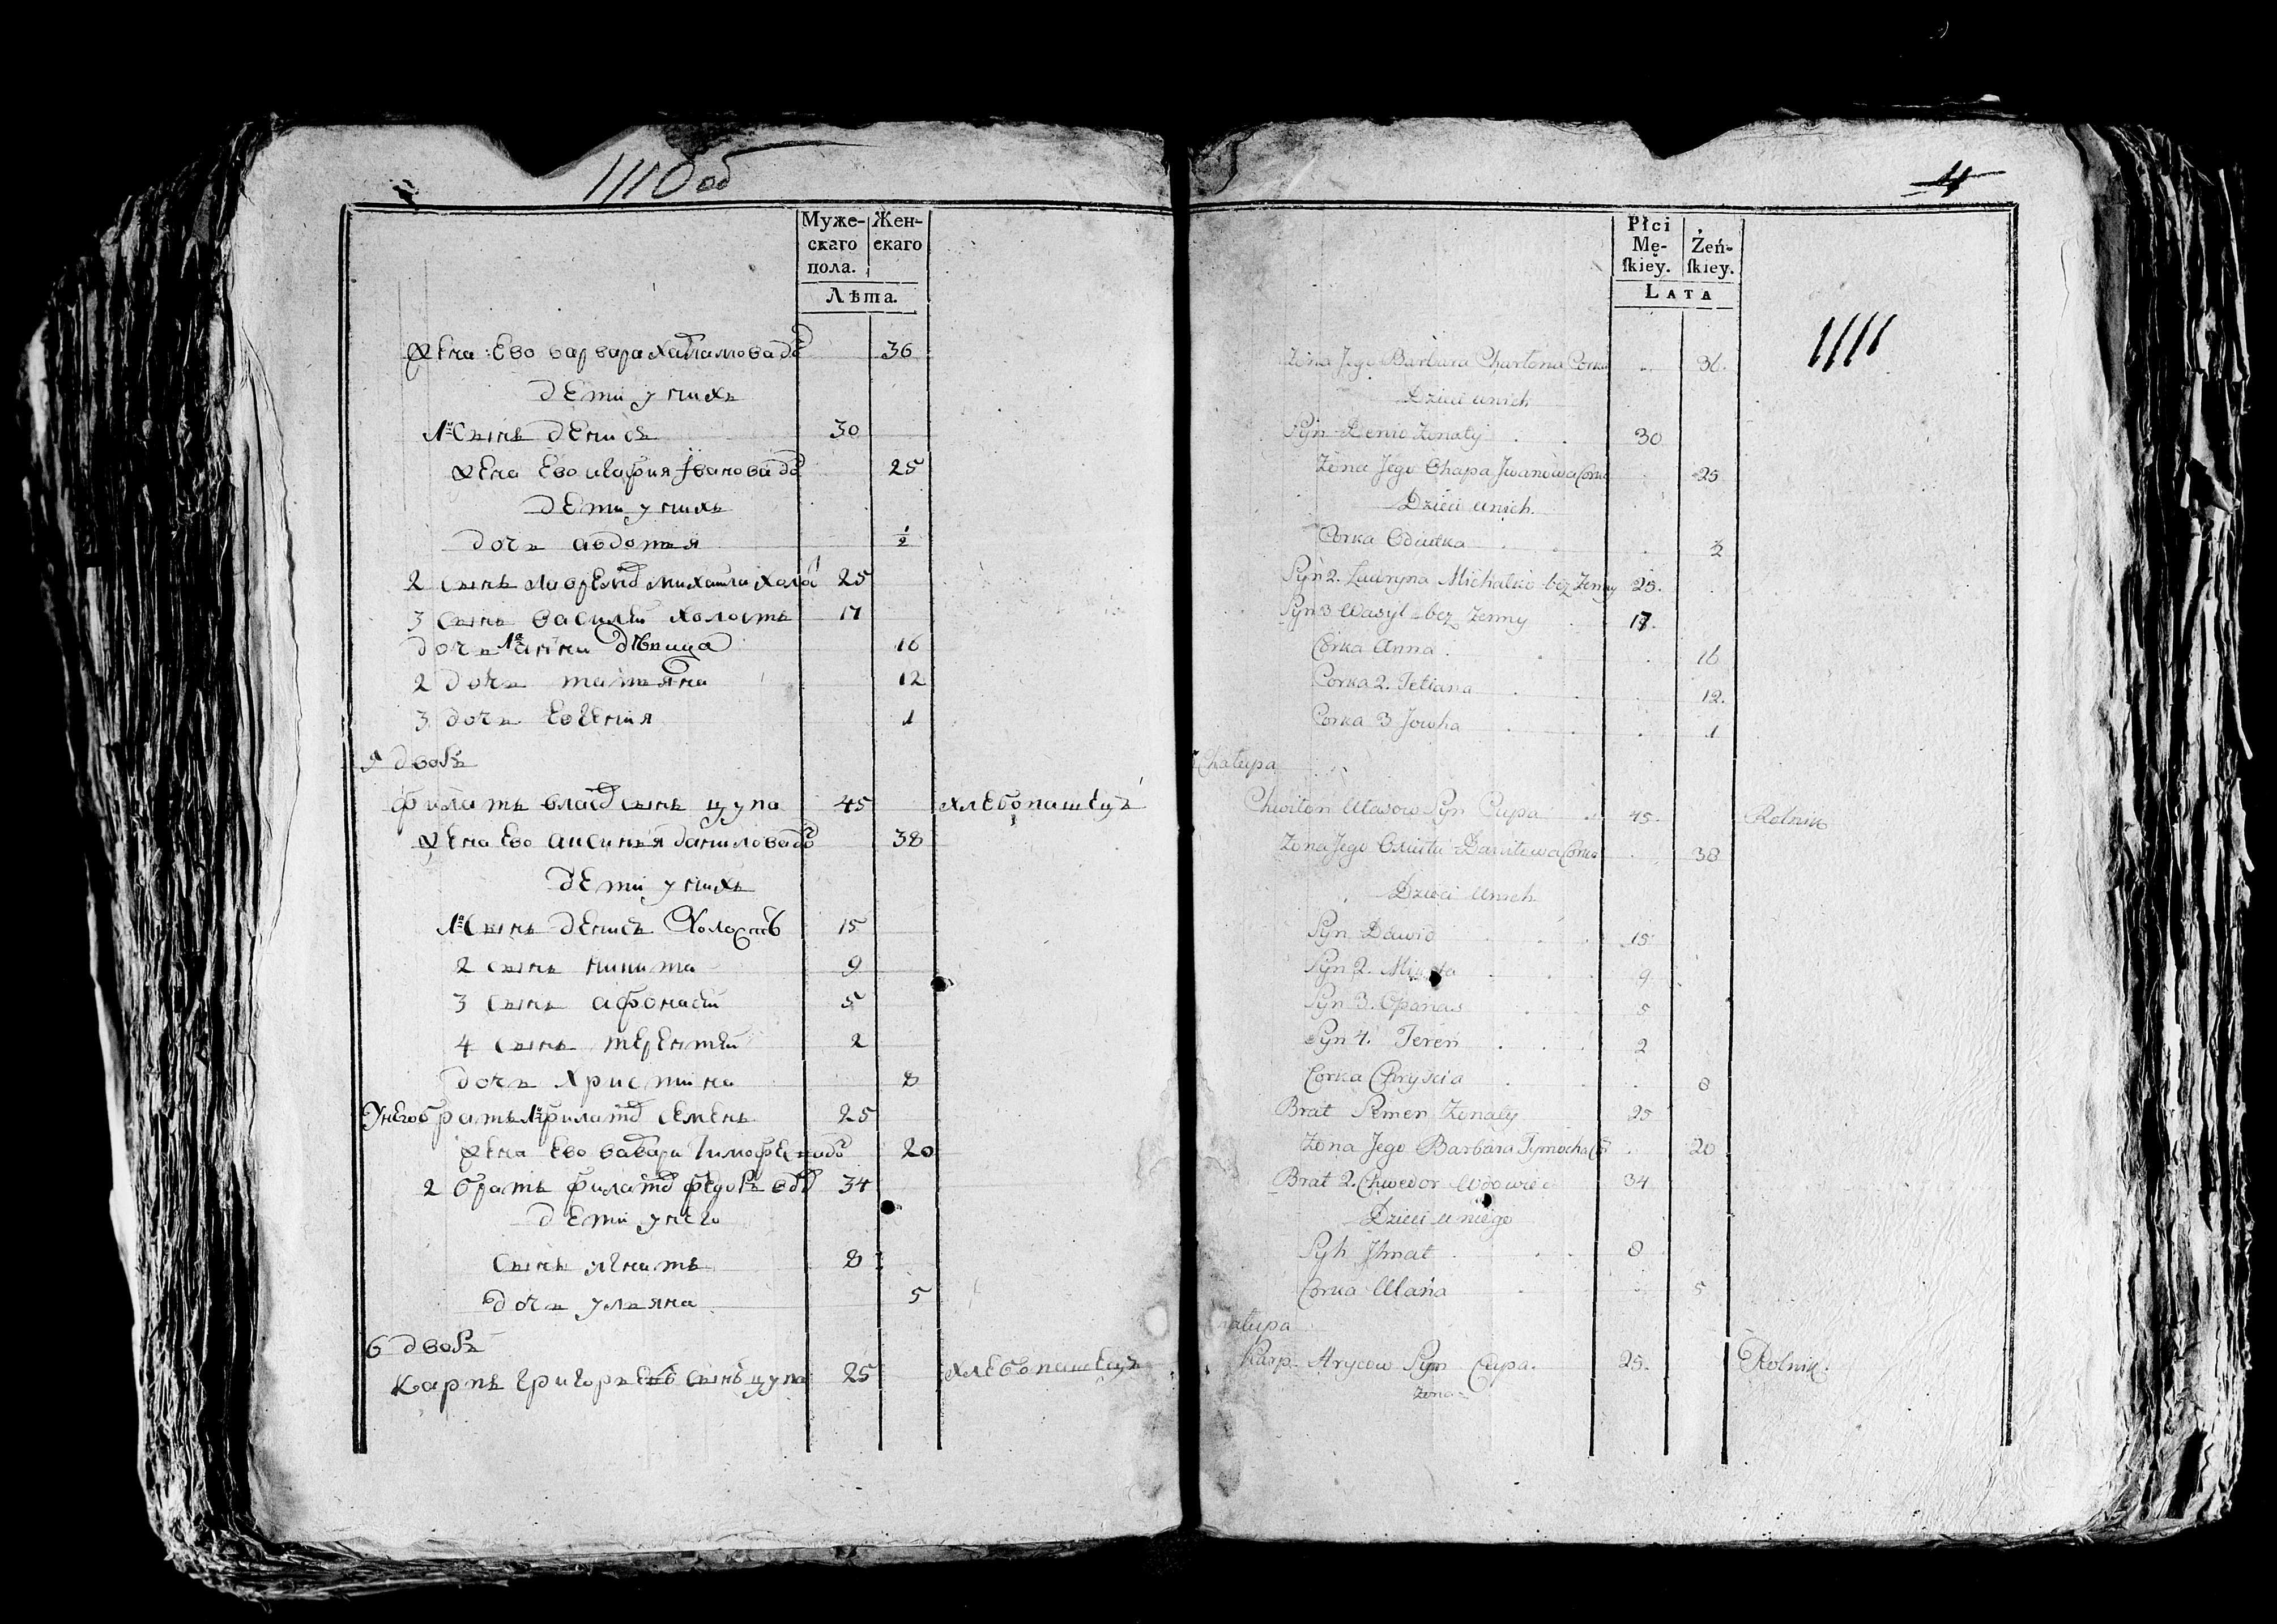 1110 об
Муже-
скаго
пола.
Жен-
скаго
Лѣта.
жена Ево варвара Харламова до 36
дети у нихъ
1й Сынъ денисъ 30
жена Ево Агафия Ивановадо 25
дети у нихъ
дочь авдотья ½
2 сынъ михаила холо 25
3 сынъ василей холостъ 17
дочь 1я анна дѣвица 16
2 дочь татьяна 12
3 дочь Евгения 1
5 дворъ
филатъ власо сынъ цупа 45 хлебопашецъ
жена Ево аксинья даниловадо 38
дети у нихъ
1й Сынъ денисъ Холостъ 15
2 сынъ никита 9
3 сынъ афонасей 5
4 сынъ терентей 2
дочь христина 8
У него братъ 1й филато семенъ 25
жена Ево варвара Тимофе 20
2 братъ филато федоръ вдо 34
дети у него
сынъ игнатъ 8
дочь ульяна 5
6 дворъ
карпъ григорьевъ сынъ цупа 25 хлебопашецъ
4
Płci
Mę-
skiey.
Żeń-
skiey.
LATA
1111
Zona Jego Barbara Charłona Corka 36.
Dzieci unich
Syn Denis Zonaty 30
Zona Jego Ohapa Jwanowa Corka 25
Dzieci unich.
Corka Odiutka ½
Syn 2. Michalko bez Zenny 25.
Syn 3 Wasyl bez zenny 17.
Corka Anna 16
Corka 2. Tetiana 12.
Corka 3 Jowha 1
Chałupa
Chwiłon Ułasow Syn Cupa 45. Rolnik
Zona Jego Daniłowa Corka 38
Dzieci unich
Syn Dawid 15
Syn 2. Mikita 9
Syn 3. Opanas 5
Syn 4. Tereń 2
Corka Chryscia 8
Brat Semen Zonaty 25
Zona Jego Barbara Tymocha 20
Brat 2. Chwedor Wdowiec 34
Dzieci u niego
Syn Jhnat 8
Corka Ulana 5
Chałupa
Karp Hrycow Syn Cupa. 25. Rolnik.
Zona